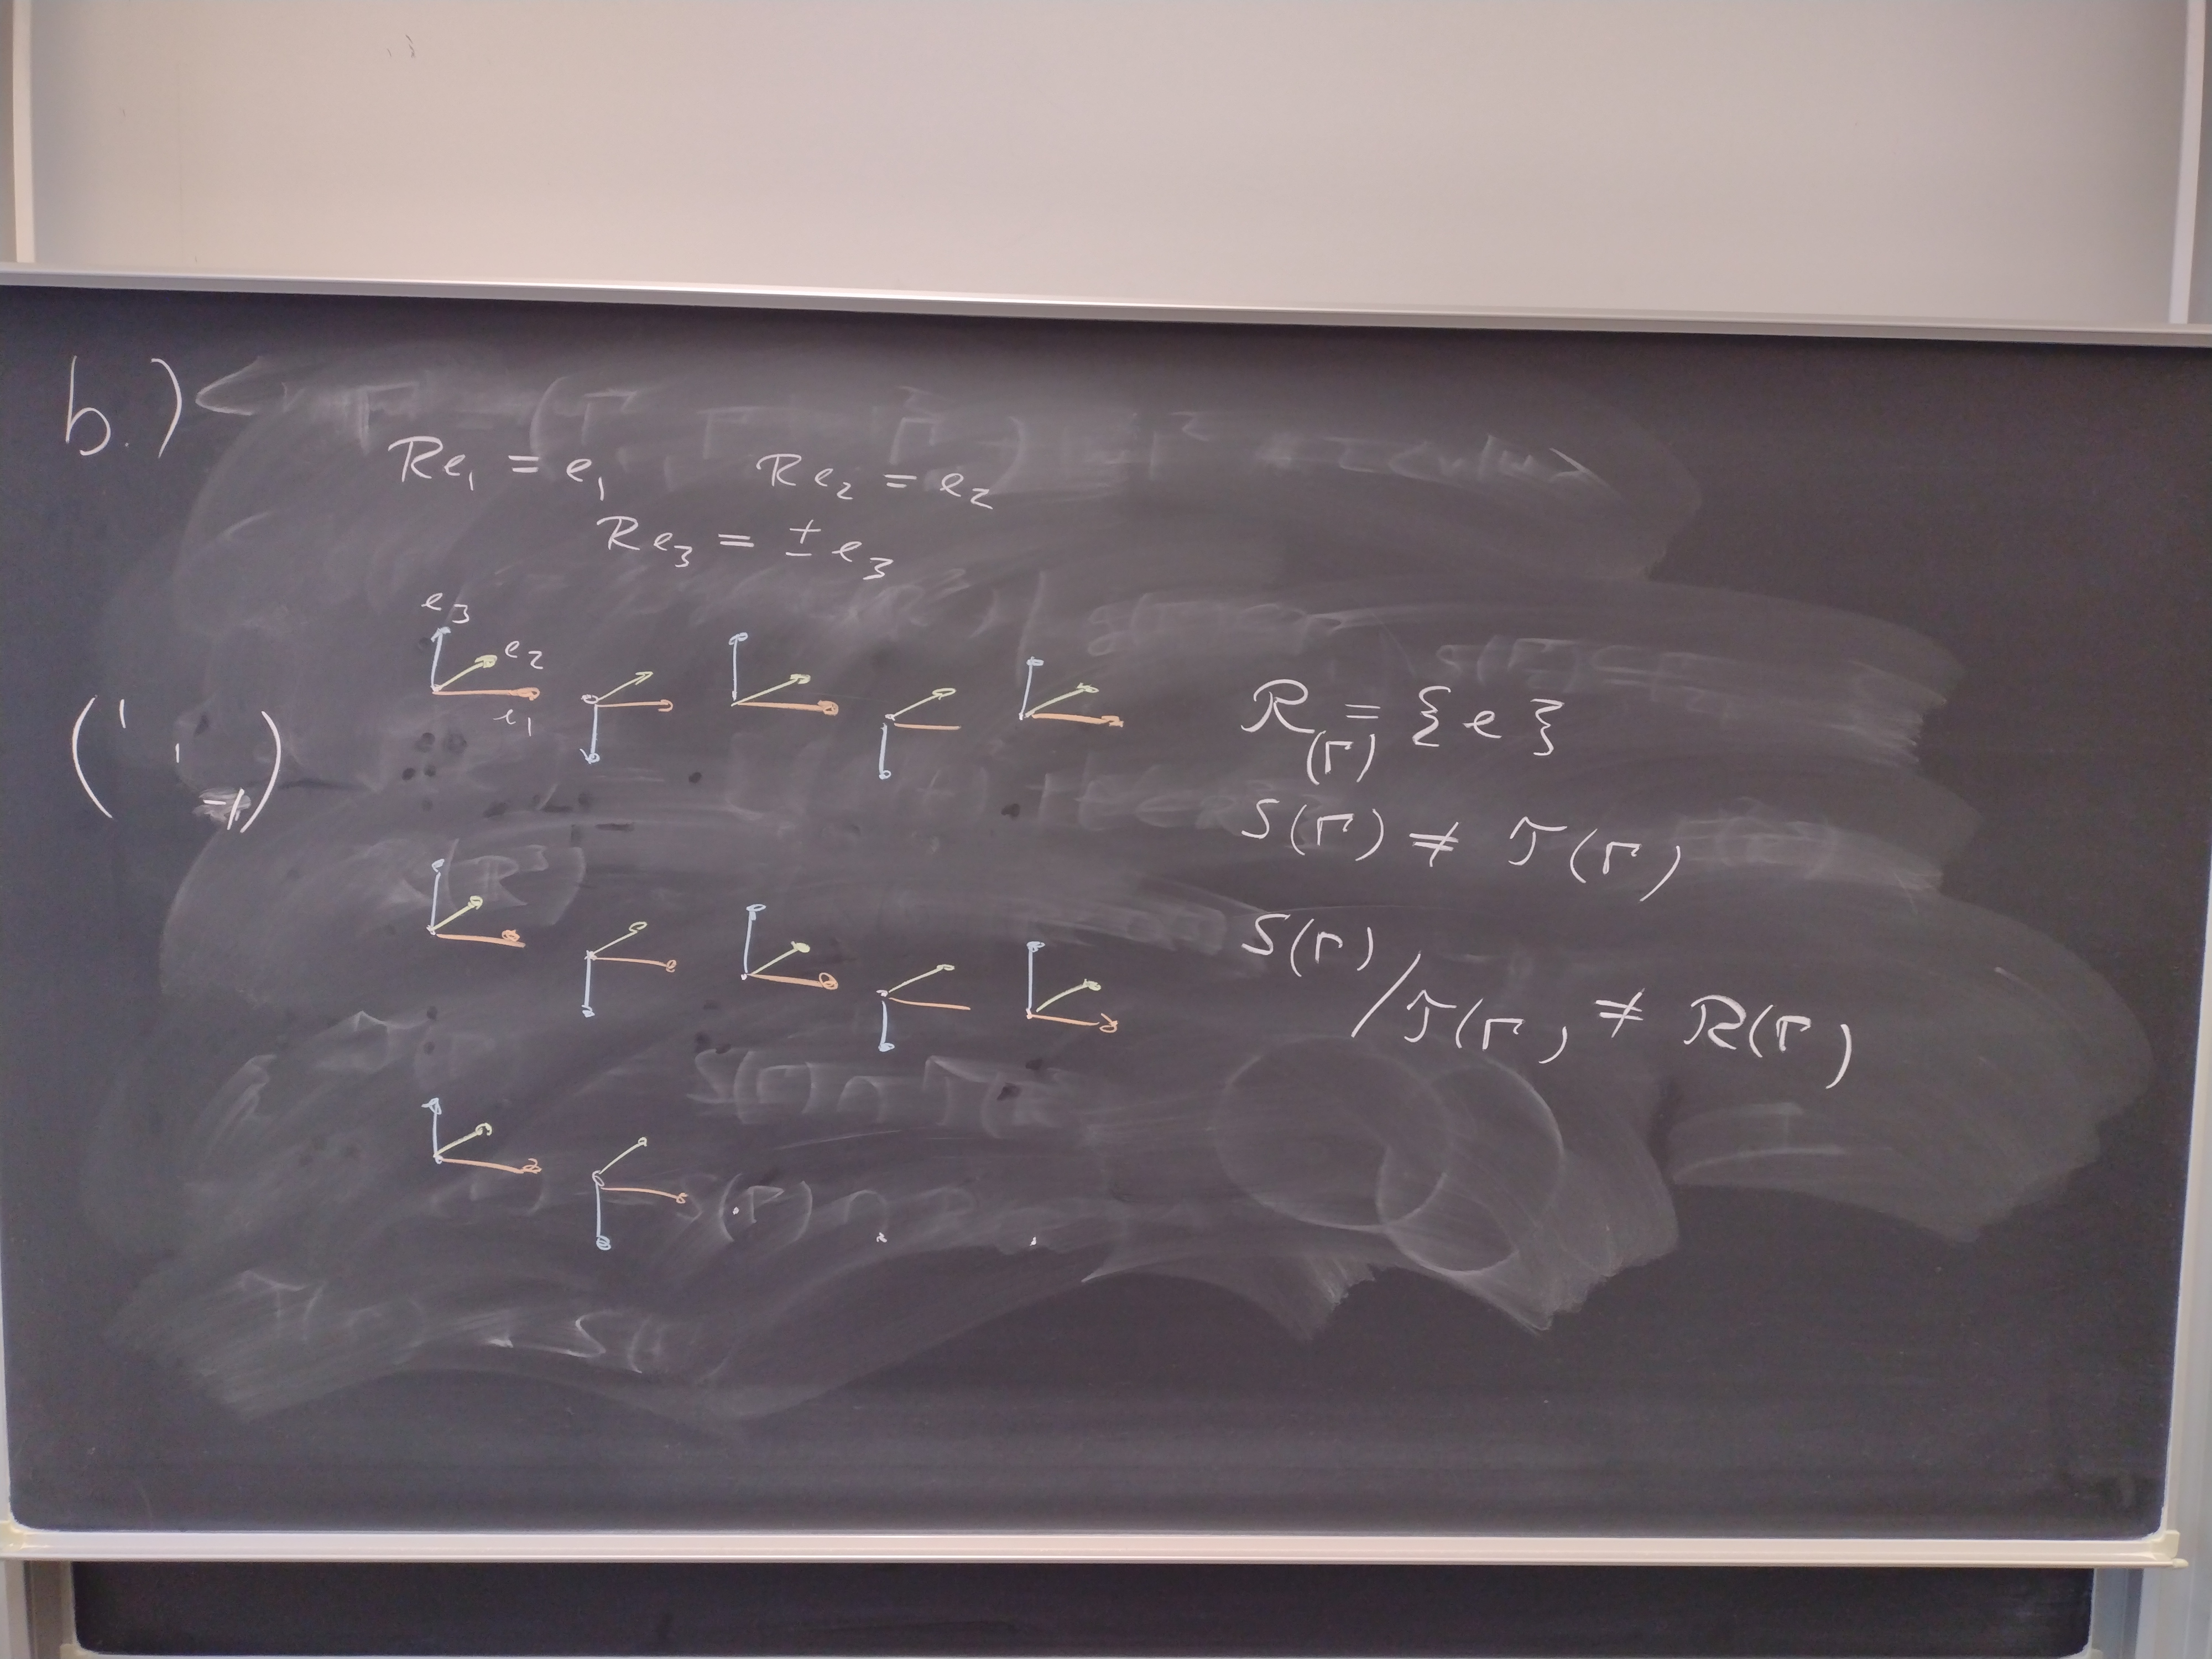 b.)
Re₁ = e₁ Re₂ = e₂
Re₃ = ± e₃
e₃
e₂
e₁
(1 1 -1)
R(Γ) = {e}
S(Γ) ≠ T(Γ)
S(Γ)/T(Γ) ≠ R(Γ)